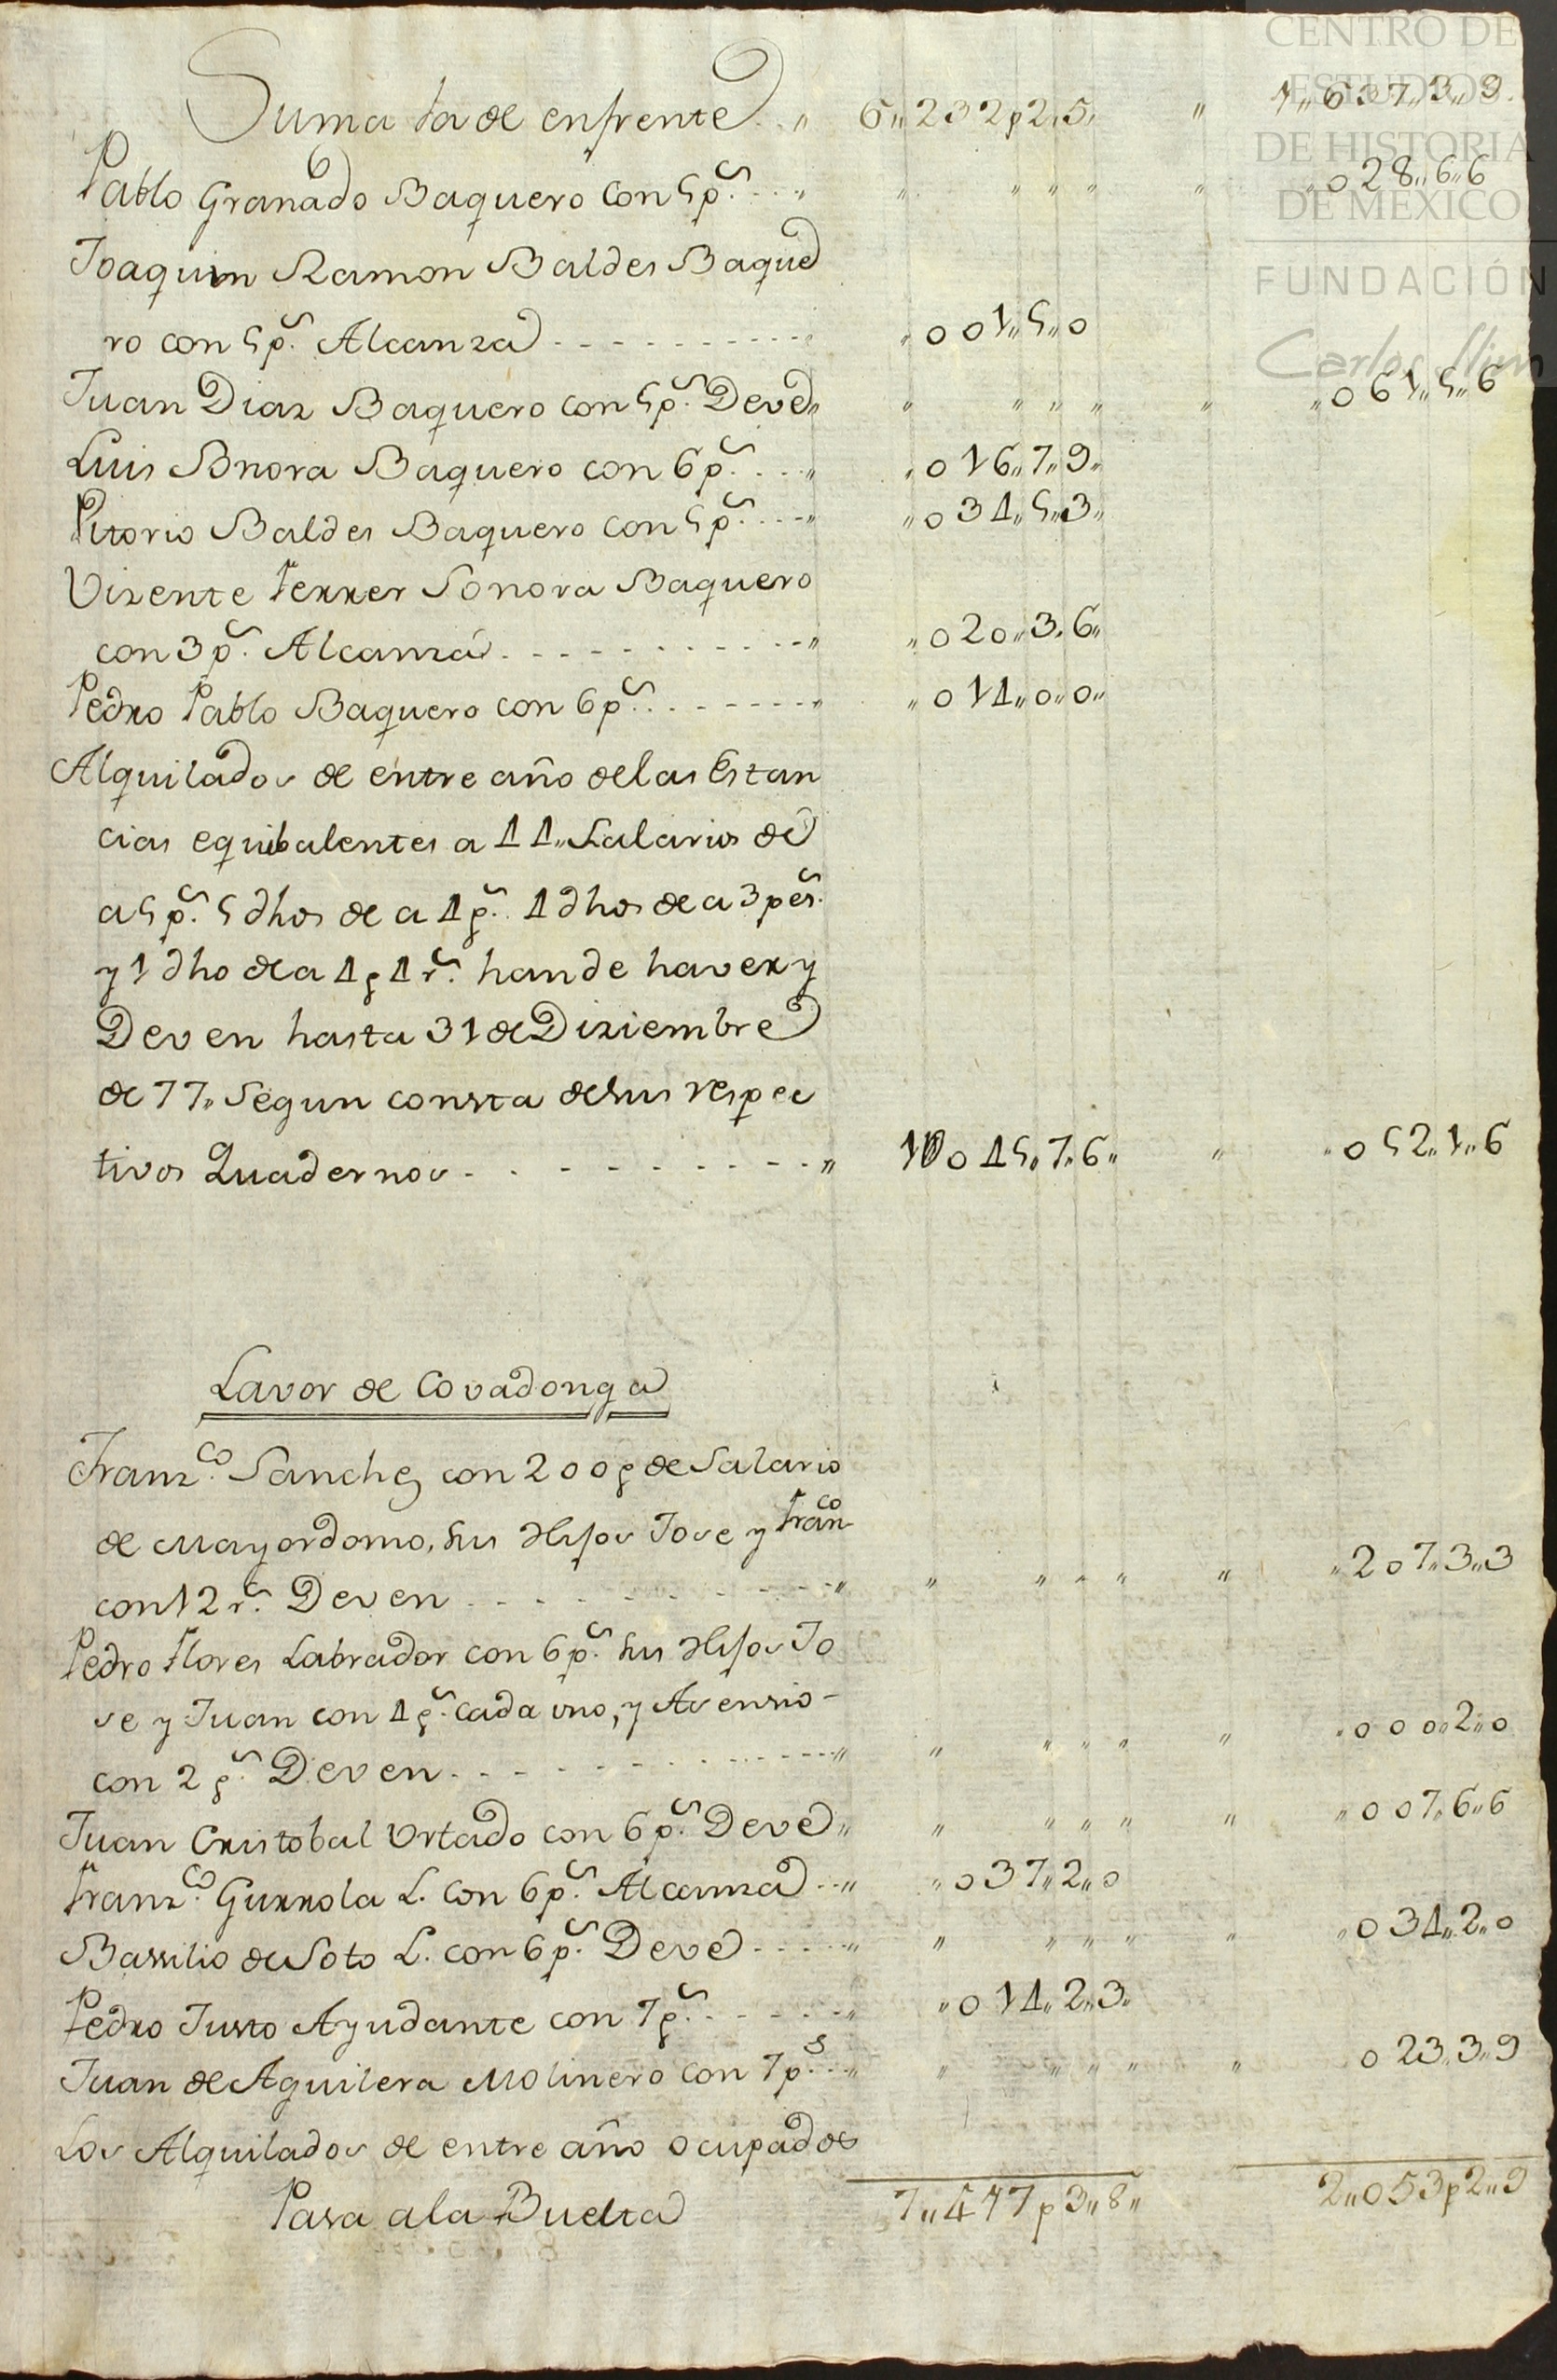 Suma la de enfrente „ 6„232p2„5„ „ 1„637„3„9.
Pablo Granado Baquero con 5 p.s „ „ „ „ „ „ „028„6„6
Joaquin Ramon Baldes Baque
ro con 5 p.s Alcanza „001„5„0
Juan Diaz Baquero con 5 p.s Deve „ „ „ „ „ „ „061„5„6
Luis Snora Baquero con 6 p.s „ „016„7„9„
Vitorio Baldes Baquero con 5 p.s „ „034„5„3„
Vizente Ferrer Sonora Baquero
con 3 p.s Alcanza „ „020„3„6„
Pedro Pablo Baquero con 6 p.s „ „014„0„0„
Alquilados de entre año delas Estan
cias equibalentes a 44„ Salarios de
a 5 p.s 5 dhos de a 4 p.s 4 dhos de a 3 pes.
y 1 dho de a 4 p 4 r.s han de haver y
Deven hasta 31 de Diziembre
de 77„ Segun consta desus respec
tivos Quadernos „ 1„045„7„6„ „ „052„1„6
Lavor de Covadonga
Franz.co Sanchez con 200 p de Salario
de Mayordomo, sus Hijos Jose y Fran.co
con 12 r.s Deven „ „ „ „ „ „ „207„3„3
Pedro Flores Labrador con 6 p.s sus Hijos Jo
se y Juan con 4 p.s cada uno, y Asensio
con 2 p.s Deven „ „ „ „ „ „ „000„2„0
Juan Cristobal Urtado con 6 p.s Deve „ „ „ „ „ „ „007„6„6
Franz.co Gurrola L. con 6 p.s Alcanza „ „037„2„0
Bassilio de Soto L. con 6 p.s Deve „ „ „ „ „ „ „034„2„0
Pedro Justo Ayudante con 7 p.s „ „014„2„3„
Juan de Aguilera Molinero con 7 p.s „ „ „ „ „ „ 023„3„9
Los Alquilados de entre año ocupados
Pasa ala Buelta 7„417p3„8„ 2„053p2„9
CENTRO DE
ESTUDIOS
DE HISTORIA
DE MÉXICO
FUNDACIÓN
Carlos Slim